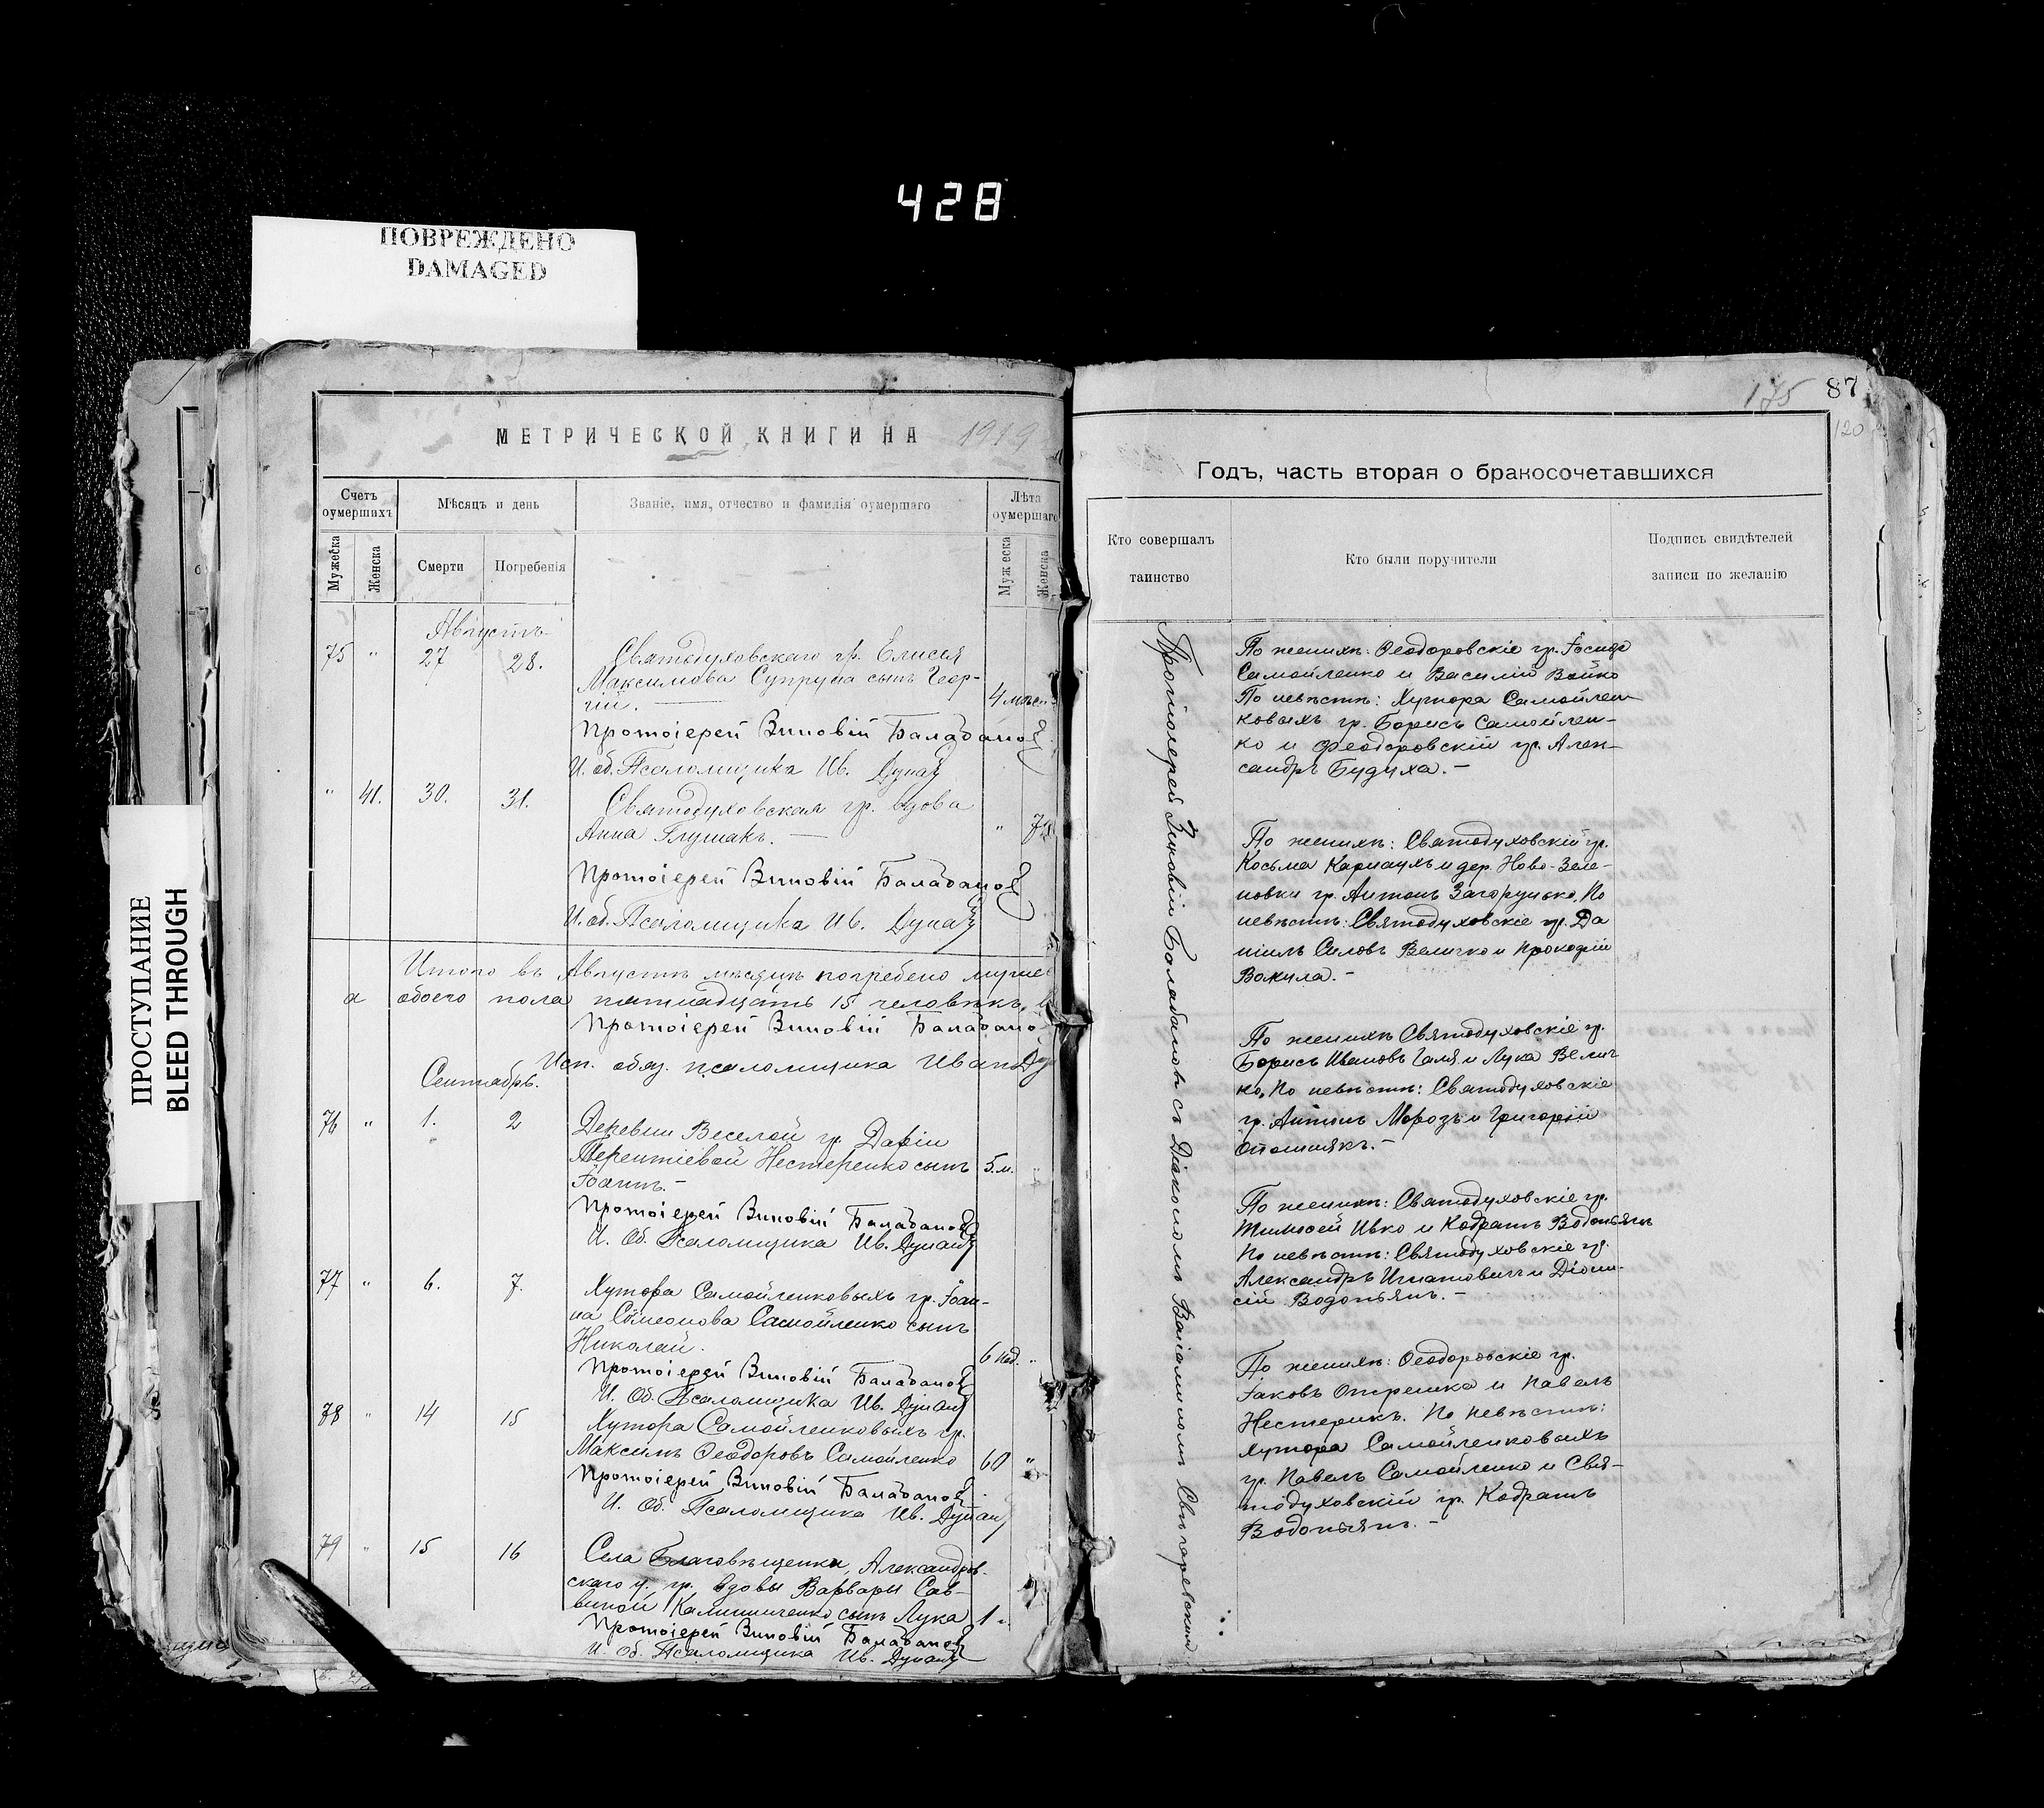 428
ПОВРЕЖДЕНО
DAMAGED
ПРОСТУПАНИЕ
BLEED THROUGH
МЕТРИЧЕСКОЙ КНИГИ НА 1919
Счетъ оумершихъ
Мѣсяцъ и день
Званіе, имя, отчество и фамилія оумершаго
Лѣта оумершаго
Мужеска
Женска
Смерти
Погребенія
Мужеска
Женска
Августъ
75 " 27 28. Святодуховскаго гр. Елисея
Максимова Супруна сынъ Геор-
гій. 4 мѣс.
Протоіерей Зиновій Балабановъ
И. об. Псаломщика Ив. Дунай
" 41. 30. 31. Святодуховская гр. вдова
Анна Глушакъ. — "
Протоіерей Зиновій Балабановъ
И. об. Псаломщика Ив. Дунай
Итого въ Августѣ мѣсяцѣ погребено
а обоего пола пятнадцать 15 человѣкъ.
Протоіерей Зиновій Балабано
Исп. обяз. псаломщика Иван
Сентябрь.
76 " 1. 2 Деревни Веселой гр. Дарiи
Терентіевой Нестеренко сынъ 5. м. "
Іоаннъ. -
Протоіерей Зиновій Балабановъ
И. Об. Псаломщика Ив. Дунай
77 " 6. 7. Хутора Самойленковыхъ гр. Іоан-
на Сѵмеонова Самойленко сынъ
Николай. 6 нед. "
Протоіерей Зиновій Балабановъ
И. Об. Псаломщика Ив. Дунай
78 " 14 15 Хутора Самойленковыхъ гр.
Максимъ Ѳеодоровъ Самойленко 60 "
Протоіерей Зиновій Балабановъ
И. Об. Псаломщика Ив. Дунай
79 " 15 16 Села Благовѣщенки, Александров-
скаго у. гр. вдовы Варвары Сав-
виной Калиниченко сынъ Лука 1
Протоіерей Зиновій Балабановъ
И. Об. Псаломщика Ив. Дунай
175 87
120
Годъ, часть вторая о бракосочетавшихся
Кто совершалъ таинство
Кто были поручители
Подпись свидѣтелей записи по желанію
Протоіерей Зиновій Балабановъ съ Діакономъ Веніаминомъ
По женихѣ: Ѳеодоровскіе гр. Іосифъ
Самойленко и Василій Бойко
По невѣстѣ: Хутора Самойлен
ковыхъ гр. Борисъ Самойлен-
ко и Феодоровскій гр. Алек-
сандръ Будуха. -
По женихѣ: Святодуховскій гр.
Косьма Карнаухъ и дер. Ново-Зеле-
новки гр. Антонъ Загорулько. По
невѣстѣ: Святодуховскіе гр. Да
ніилъ Силовъ Величко и Прокофій
Вакула. -
По женихѣ Святодуховскіе гр.
Борисъ Ивановъ Галя и Лука Велич
ко. По невѣстѣ: Святодуховскіе
гр. Антонъ Морозъ и Григорій
Опошнякъ. -
По женихѣ: Святодуховскіе гр.
Тимоѳей Ивко и Кодратъ Водопьянъ
По невѣстѣ: Святодуховскіе гр.
Александръ Игнатовичъ и Діони-
сій Водопьянъ. -
По женихѣ: Ѳеодоровскіе гр.
Іаковъ Отрешка и Павелъ
Нестерикъ. По невѣстѣ:
хутора Самойленковыхъ
гр. Павелъ Самойленко и Свя-
тодуховскій гр. Кодратъ
Водопьянъ. -